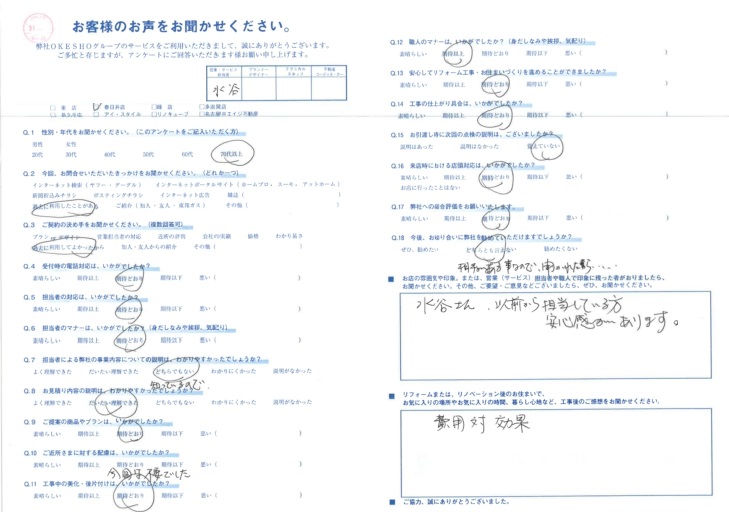 お客様のお声をお聞かせください。
弊社OKESHOグループのサービスをご利用いただきまして、誠にありがとうございます。
ご多忙と存じますが、アンケートにご回答いただきます様お願い申し上げます。
水谷
□ 本 店 ☑ 春日井店 □緑 店 □多治見店
□ アイ・スタイル □リノキューブ □名古屋ヨエイジ不動産
Q.1 性別・年代をお聞かせください。（このアンケートをご記入いただく方）
男性 女性
20代 30代 40代 50代 60代 70代以上
Q.2 今回、お問合せいただいたきっかけをお聞かせください。（どれか一つ）
インターネット検索（ヤフー・グーグル） インターネットポータルサイト（ホームプロ、スーモ、アットホーム）
新聞折込みチラシ ポスティングチラシ インターネット広告 雑誌（ ）
過去に利用したことがある ご紹介（知人・友人・荘苑ガス） その他（ ）
Q.3 ご契約の決め手をお聞かせください。（複数回答可）
プラン or デザイン 営業担当者の対応 近所の評判 会社の実績 価格 わかり易さ
過去に利用してよかったから 知人・友人からの紹介 その他（ ）
Q.4 受付時の電話対応は、いかがでしたか？
素晴らしい 期待以上 期待どおり 期待以下 悪い（ ）
Q.5 担当者の対応は、いかがでしたか？
素晴らしい 期待以上 期待どおり 期待以下 悪い（ ）
Q.6 担当者のマナーは、いかがでしたか？（身だしなみや挨拶、気配り）
素晴らしい 期待以上 期待どおり 期待以下 悪い（ ）
Q.7 担当者による弊社の事業内容についての説明は、わかりやすかったでしょうか？
よく理解できた だいたい理解できた どちらでもない わかりにくかった 説明がなかった
知っているので、
Q.8 お見積り内容の説明は、わかりやすかったでしょうか？
よく理解できた だいたい理解できた どちらでもない わかりにくかった 説明がなかった
Q.9 ご提案の商品やプランは、いかがでしたか？
素晴らしい 期待以上 期待どおり 期待以下 悪い（ ）
Q.10 ご近所さまに対する配慮は、いかがでしたか？
素晴らしい 期待以上 期待どおり 期待以下 悪い（ ）
今回は不要でした
Q.11 工事中の美化・後片付けは、いかがでしたか？
素晴らしい 期待以上 期待どおり 期待以下 悪い（ ）
Q.12 職人のマナーは、いかがでしたか？（身だしなみや挨拶、気配り）
素晴らしい 期待以上 期待どおり 期待以下 悪い（ ）
Q.13 安心してリフォーム工事・お住まいづくりを進めることができましたか？
素晴らしい 期待以上 期待どおり 期待以下 悪い（ ）
Q.14 工事の仕上がり具合は、いかがでしたか？
素晴らしい 期待以上 期待どおり 期待以下 悪い（ ）
Q.15 お引渡し時に次回の点検の説明は、ございましたか？
説明はあった 説明はなかった 覚えていない
Q.16 来店時における店頭対応は、いかがでしたか？
素晴らしい 期待以上 期待どおり 期待以下 悪い（ ）
お店に行ったことはない
Q.17 弊社への総合評価をお願いいたします。
素晴らしい 期待以上 期待どおり 期待以下 悪い（ ）
Q.18 今後、お知り合いに弊社を勧めていただけますでしょうか？
ぜひ、勧めたい どちらとも言えない 勧めたくない
■ お店の雰囲気や印象、または、営業（サービス）担当者や職人で印象に残った者がおりましたら、
お聞かせください。その他、ご要望・ご意見などございましたら、ぜひ、お聞かせください。
水谷さん、以前から担当している方
安心感があります。
■ リフォームまたは、リノベーション後のお住まいで、
お気に入りの場所やお気に入りの時間、暮らし心地など、工事後のご感想をお聞かせください。
費用対効果
■ ご協力、誠にありがとうございました。